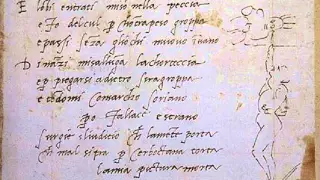 E lobi entrati miso nella peccia
e fo delcul p chotrapeso groppa
e passi seza gliochi muouo inuano
Dinazi misaluga lachorteccia
e p piegarsi adietro siragroppa
e tedomi comarcho soriano
po fallace e strano
surgie iludicio ch lamete porta
ch mal sitra p cerboctana torta
lamia pictura morta